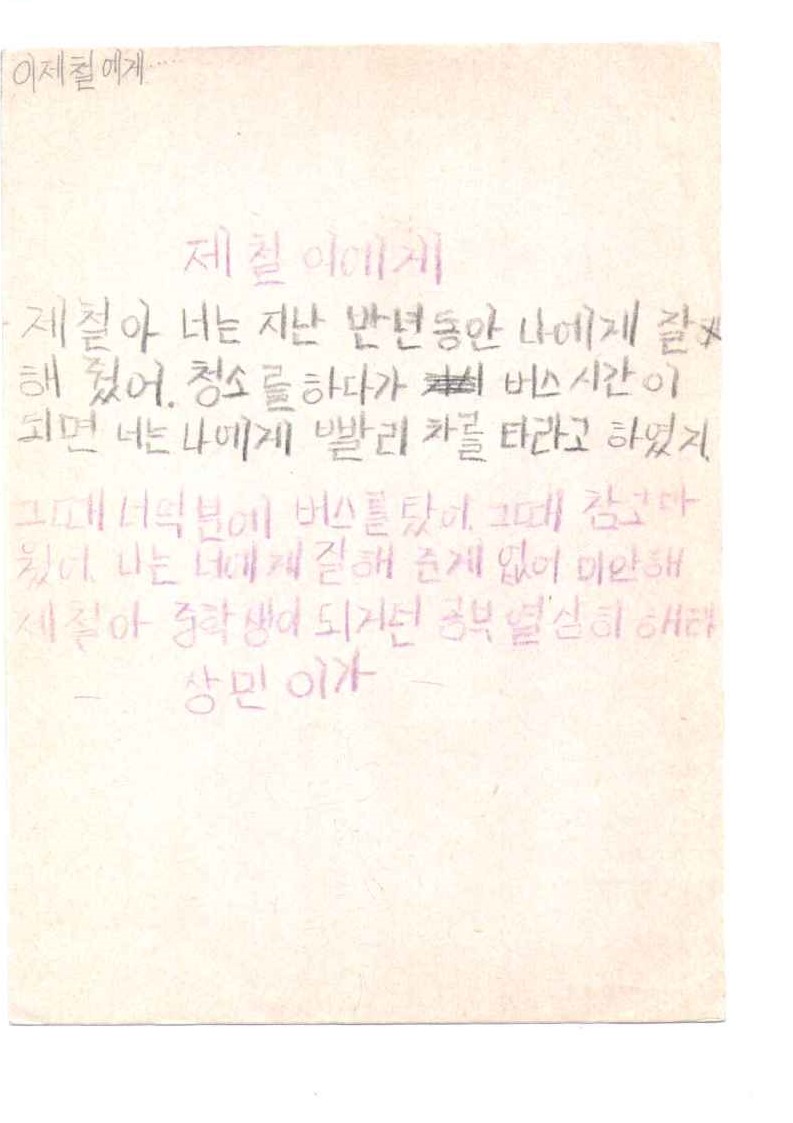 이제철에게.....
제철이에게
제철아 너는 지난 반년동안 나에게 잘
해 줬어. 청소를 하다가 버스 시간이
되면 너는 나에게 빨리 차를 타라고 하였지.
그때 너덕분에 버스를 탔어. 그때 참 고마
웠어. 나는 너에게 잘해 준게 없어 미안해
제철아 중학생이 되거던 공부 열심히 해라
상민이가